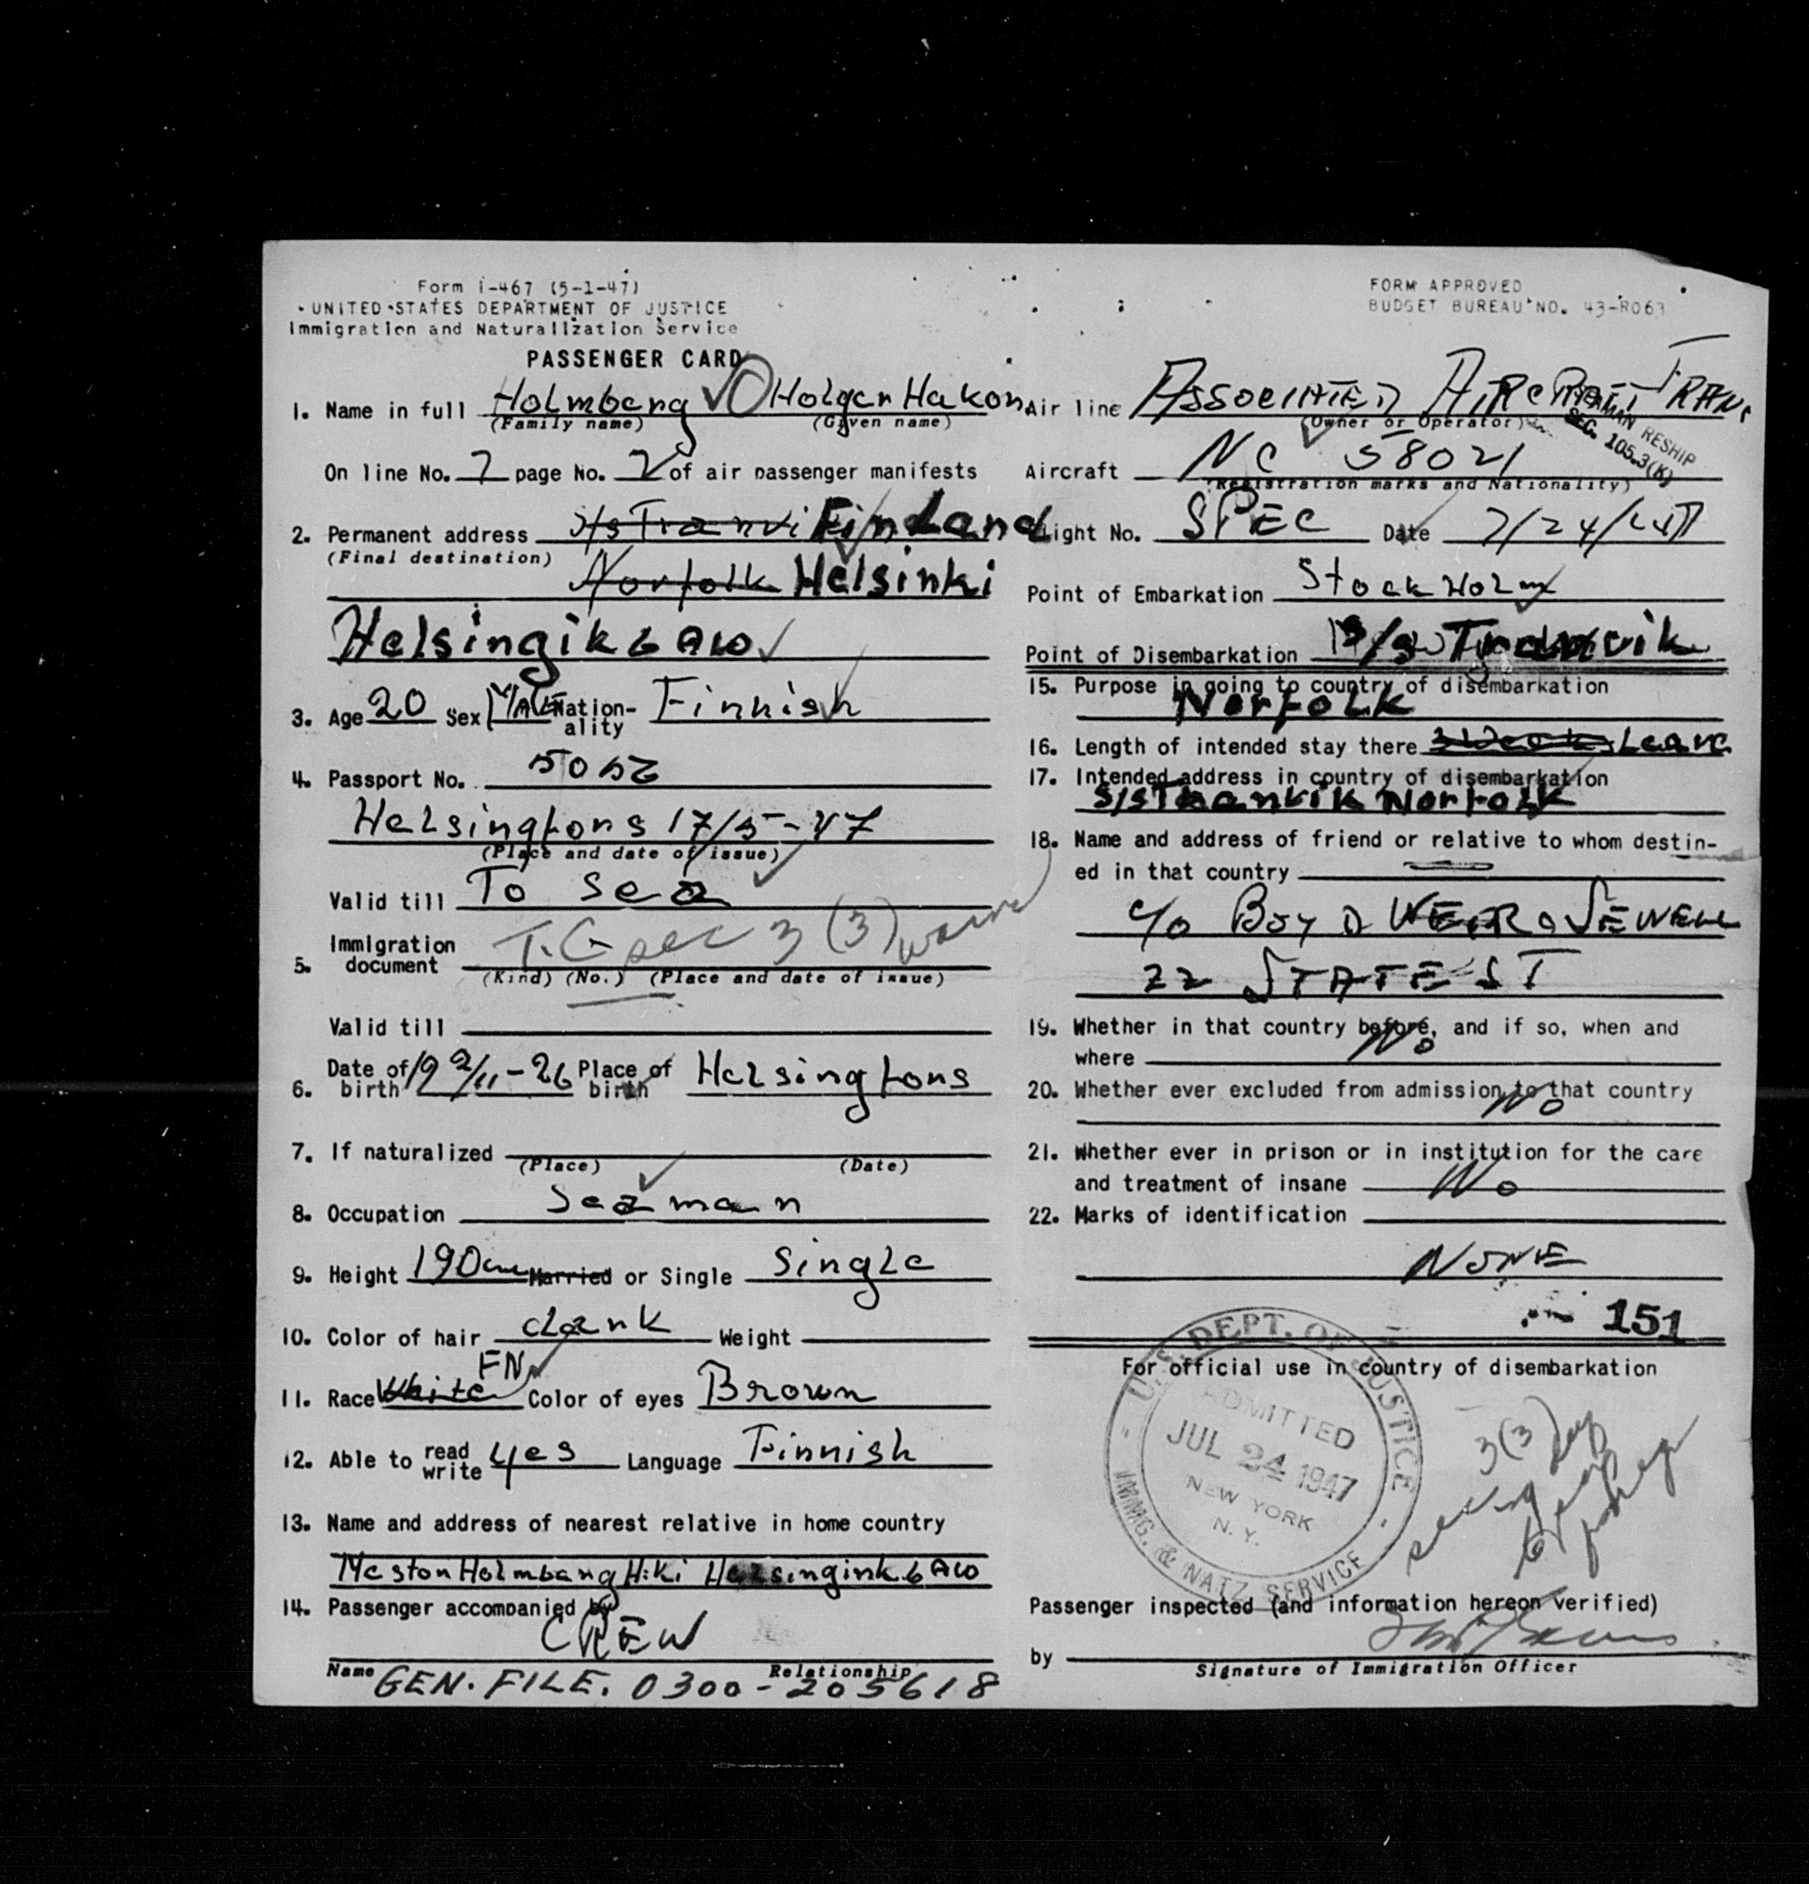 Form i-467 (5-1-47)
UNITED STATES DEPARTMENT OF JUSTICE
Immigration and Naturalization Service
PASSENGER CARD
FORM APPROVED
BUDGET BUREAU NO. 43-R063
1. Name in full Holmberg Holger Hakon
(Family name) (Given name)
On line No. 7 page No. 2 of air passenger manifests
2. Permanent address Finland
(Final destination)
Norfolk Helsinki
Helsingik 6 A10
3. Age 20 Sex MALE Nationality Finnish
4. Passport No. 5052
Helsingfors 17/5-47
(Place and date of issue)
Valid till To Sea
5. Immigration document
(Kind) (No.) (Place and date of issue)
Valid till
6. Date of birth 19 2/11-26 Place of birth Helsingfors
7. If naturalized
(Place) (Date)
8. Occupation Seaman
9. Height 190cm Married or Single Single
10. Color of hair dark Weight
11. Race White FN Color of eyes Brown
12. Able to read write yes Language Finnish
13. Name and address of nearest relative in home country
Holmberg Helsingink 6 A10
14. Passenger accompanied by
CREW
Name Relationship
GEN. FILE. 0300-205618
Air line ASSOCIATED AIRCRAFT TRAN.
(Owner or Operator)
SEAMAN RESHIP
SEC. 105.3(K)
Aircraft NC 58021
(Registration marks and Nationality)
Flight No. SPEC Date 7/24/47
Point of Embarkation Stockholm
Point of Disembarkation
15. Purpose in going to country of disembarkation
Norfolk
16. Length of intended stay there
17. Intended address in country of disembarkation
S/S Tranvik Norfolk
18. Name and address of friend or relative to whom destin-
ed in that country
c/o BOYD WEIR & SEWELL
22 STATE ST
19. Whether in that country before, and if so, when and
where No
20. Whether ever excluded from admission to that country
No
21. Whether ever in prison or in institution for the care
and treatment of insane No
22. Marks of identification
NONE
151
For official use in country of disembarkation
U.S. DEPT. OF JUSTICE
ADMITTED
JUL 24 1947
NEW YORK
N. Y.
IMMIG. & NATZ. SERVICE
Passenger inspected (and information hereon verified)
by
Signature of Immigration Officer